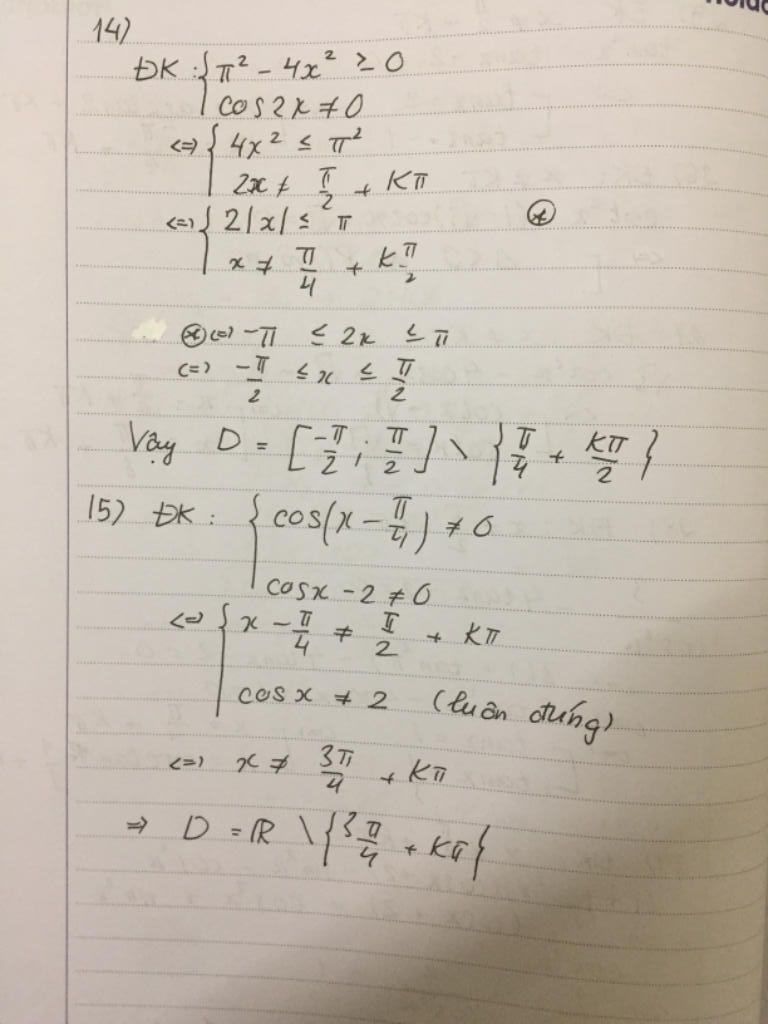 14)
ĐK : { π² - 4x² ≥ 0
cos2x ≠ 0
<=> { 4x² ≤ π²
2x ≠ π/2 + Kπ
<=> { 2|x| ≤ π (*)
x ≠ π/4 + K π/2
(*) <=> -π ≤ 2x ≤ π
<=> -π/2 ≤ x ≤ π/2
Vậy D = [-π/2 ; π/2] \ {π/4 + Kπ/2}
15) ĐK : { cos(x - π/4) ≠ 0
cosx - 2 ≠ 0
<=> { x - π/4 ≠ π/2 + Kπ
cosx ≠ 2 (luôn đúng)
<=> x ≠ 3π/4 + Kπ
=> D = ℝ \ {3π/4 + Kπ}